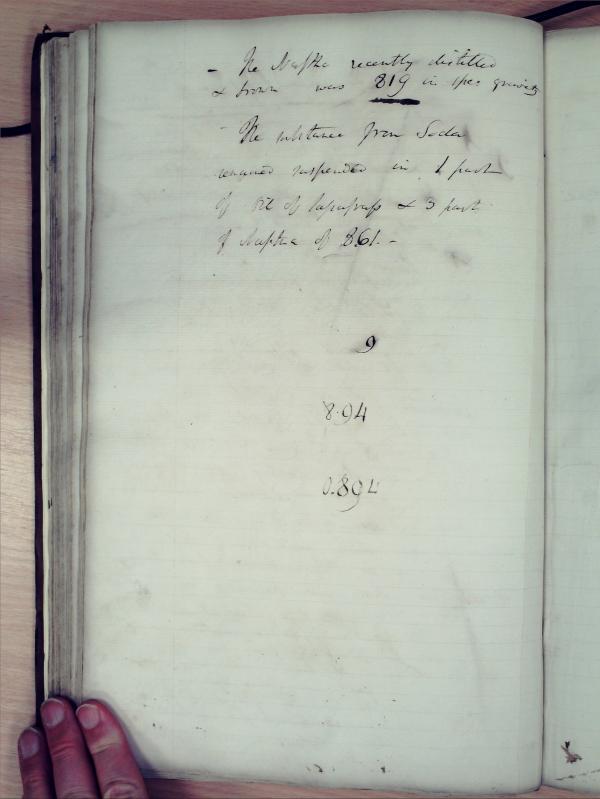 - The Naptha recently distilled
& brown was 819 in spec gravity
- The substance from Soda
remained suspended in 1 part
of Oil of Sassafrass & 3 part
of Naptha of 861. -
9
8.94
0.894